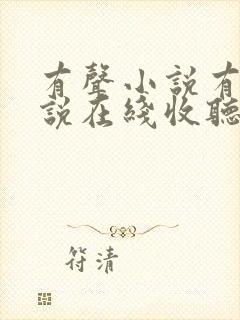 有聲小説有
説在綫收聽
符清